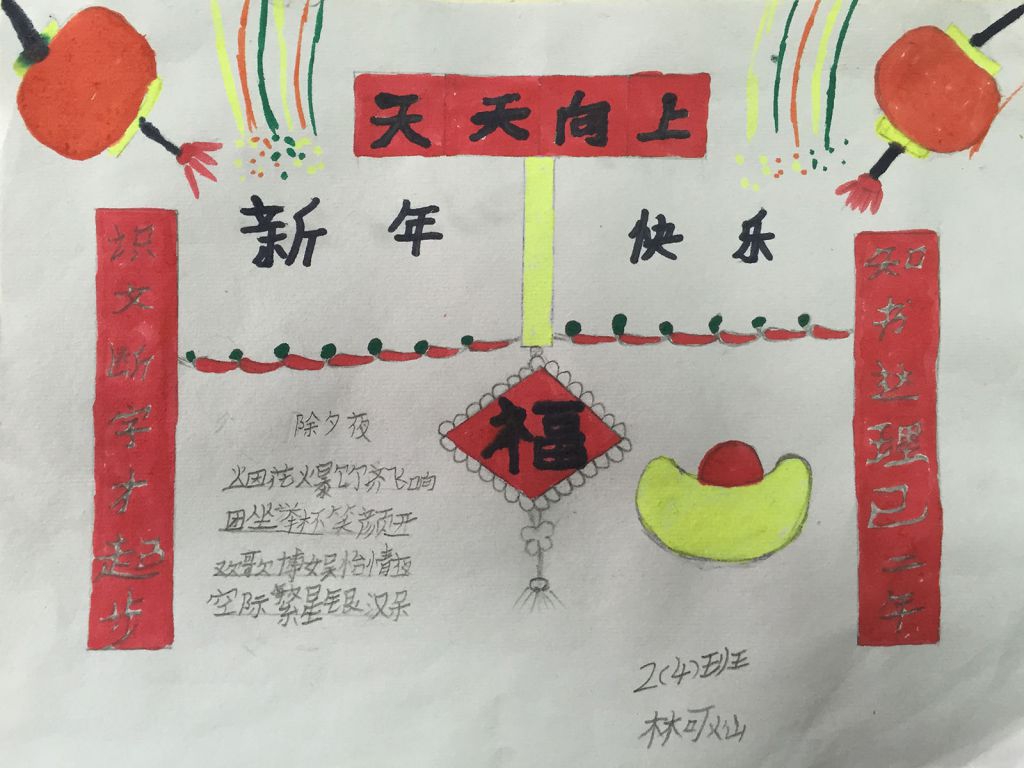 天天向上
新年 快乐
识文断字才起步
知书达理已二年
福
除夕夜
烟花爆竹齐飞响
团坐举杯笑颜开
欢歌博娱怡情夜
空际繁星银汉呆
2(4)班
林可灿